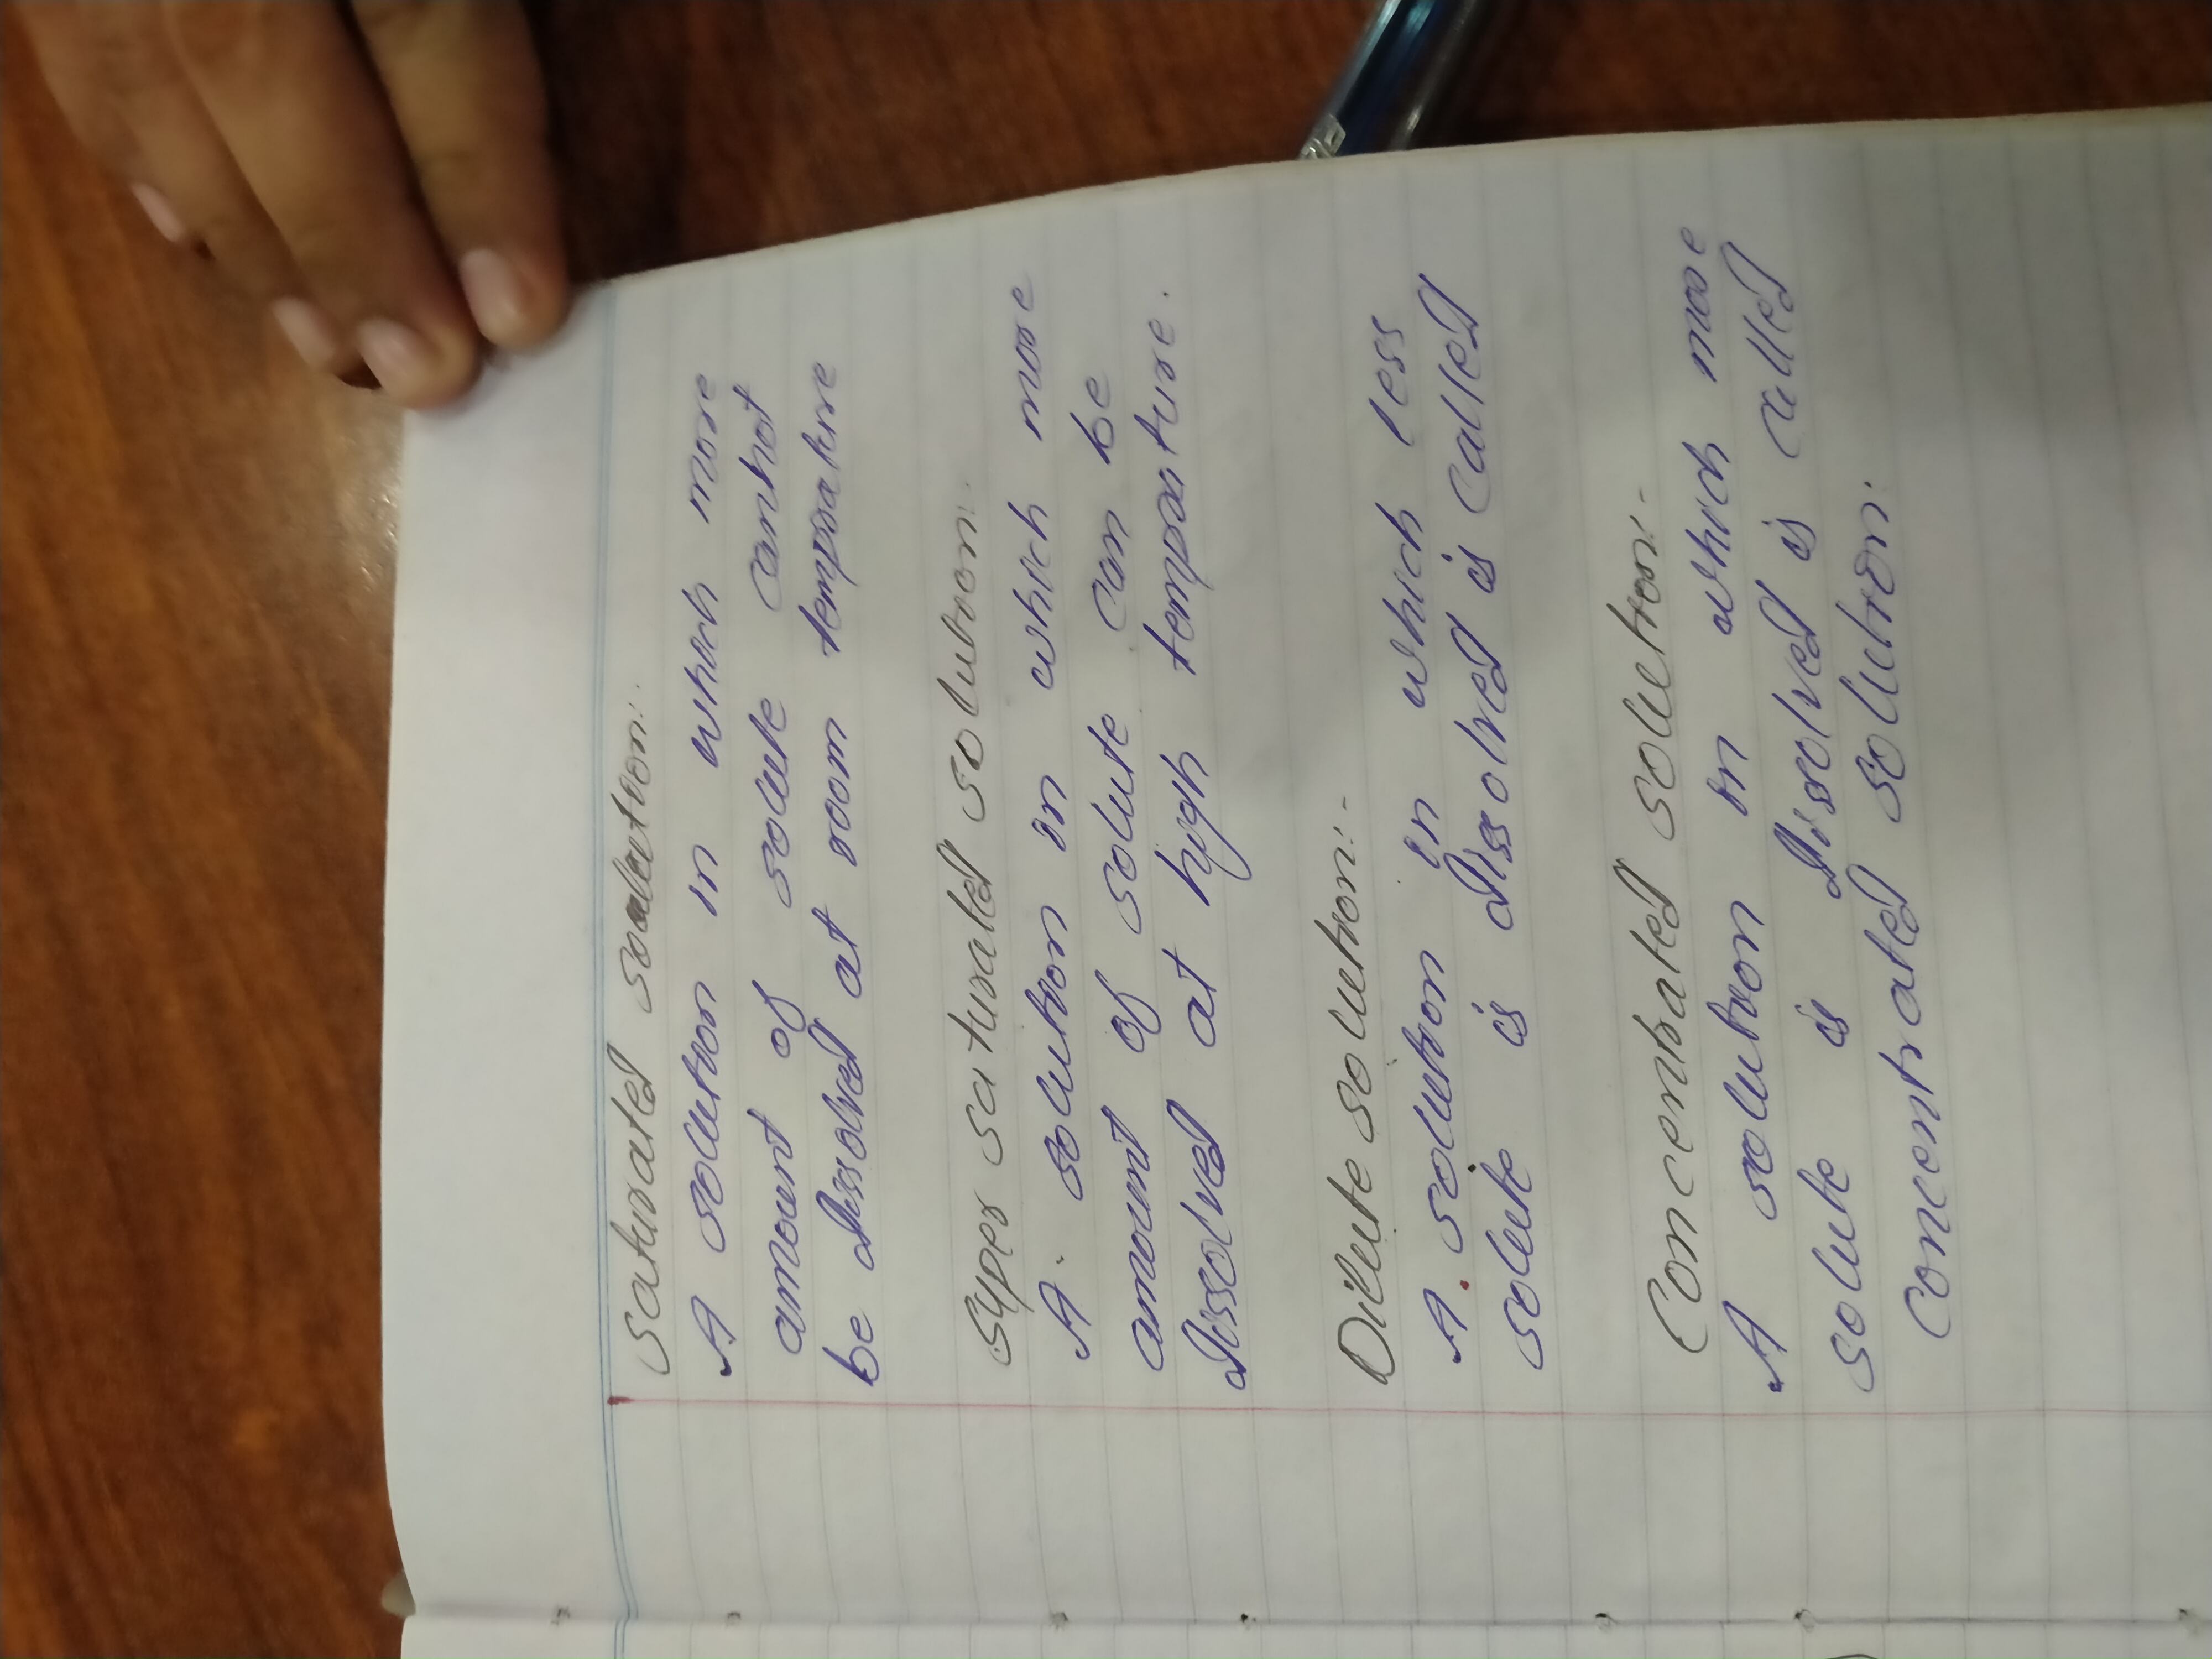 saturated solution:
A solution in which more
amount of solute cannot
be dissolved at room temprature
super saturated solution:
A solution in which more
amount of solute can be
dissolved at high temprature.
Dillute solution:-
A solution in which less
solute is dissolved is called
Concentrated solution:-
A solution in which more
solute is dissolved is called
concentrated solution: